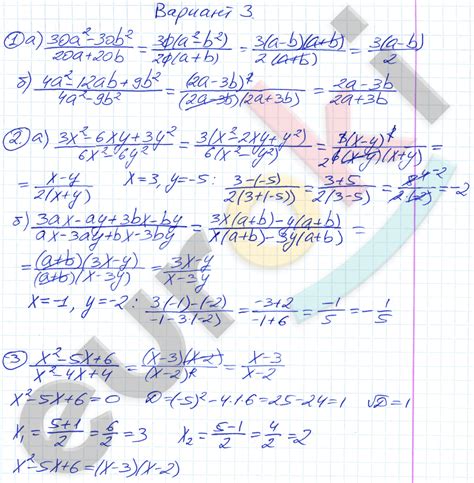 Вариант 3.
① а) (30a²-30b²)/(20a+20b) = (30(a²-b²))/(20(a+b)) = (3(a-b)(a+b))/(2(a+b)) = (3(a-b))/2
б) (4a²-12ab+9b²)/(4a²-9b²) = (2a-3b)²/((2a-3b)(2a+3b)) = (2a-3b)/(2a+3b)
② а) (3x²-6xy+3y²)/(6x²-6y²) = (3(x²-2xy+y²))/(6(x²-y²)) = (3(x-y)²)/(6(x-y)(x+y)) =
= (x-y)/(2(x+y)) x=3, y=-5: (3-(-5))/(2(3+(-5))) = (3+5)/(2(3-5)) = 8/(2(-2)) = -2
б) (3ax-ay+3bx-by)/(ax-3ay+bx-3by) = (3x(a+b)-y(a+b))/(x(a+b)-3y(a+b)) =
= ((a+b)(3x-y))/((a+b)(x-3y)) = (3x-y)/(x-3y)
x=-1, y=-2: (3·(-1)-(-2))/(-1-3·(-2)) = (-3+2)/(-1+6) = -1/5 = -1/5
③ (x²-5x+6)/(x²-4x+4) = ((x-3)(x-2))/(x-2)² = (x-3)/(x-2)
x²-5x+6=0 D=(-5)²-4·1·6=25-24=1 √D=1
x₁=(5+1)/2=6/2=3 x₂=(5-1)/2=4/2=2
x²-5x+6=(x-3)(x-2)
euroki